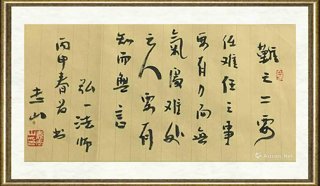 難之二要
任难任之事
要有力而無
氣處难处
之人要有
知而無言
弘一法師
丙申春书